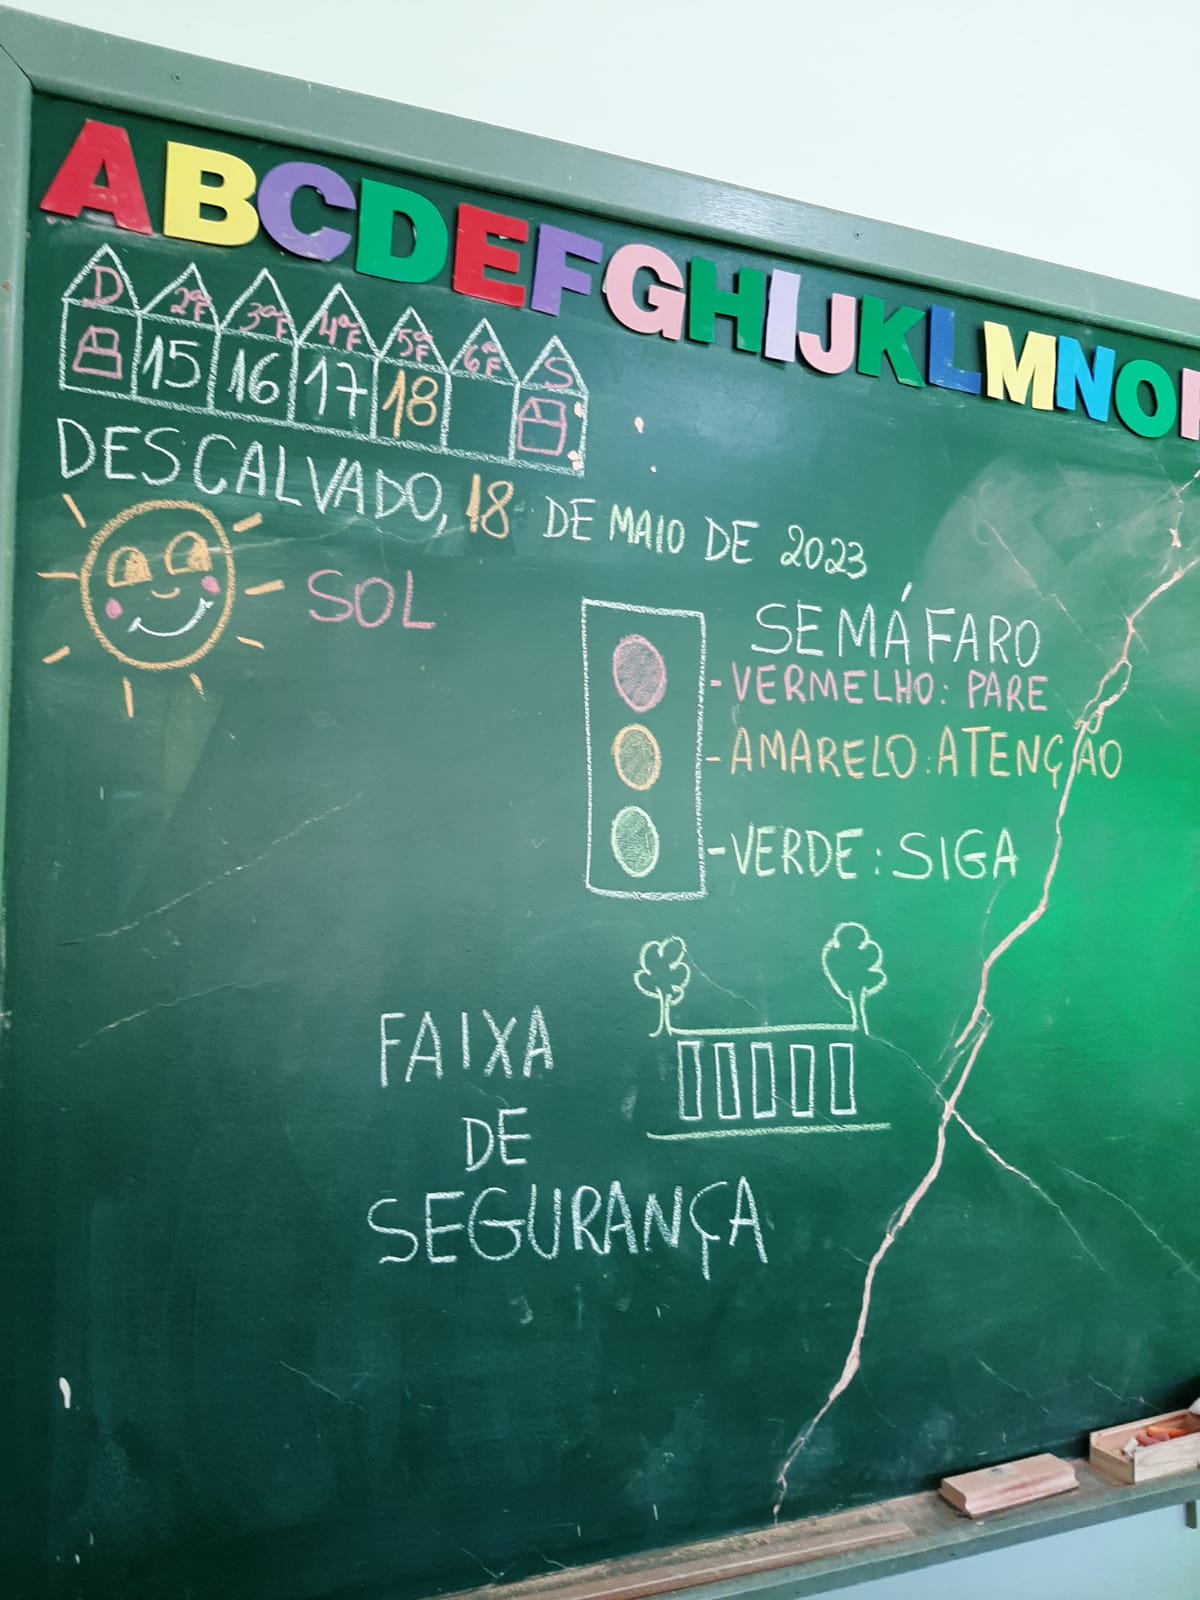 ABCDEFGHIJKLMNO
D 2ªF 3ªF 4ªF 5ªF 6ªF S
15 16 17 18
DESCALVADO, 18 DE MAIO DE 2023
SOL
SEMÁFARO
- VERMELHO: PARE
- AMARELO: ATENÇÃO
- VERDE: SIGA
FAIXA
DE
SEGURANÇA